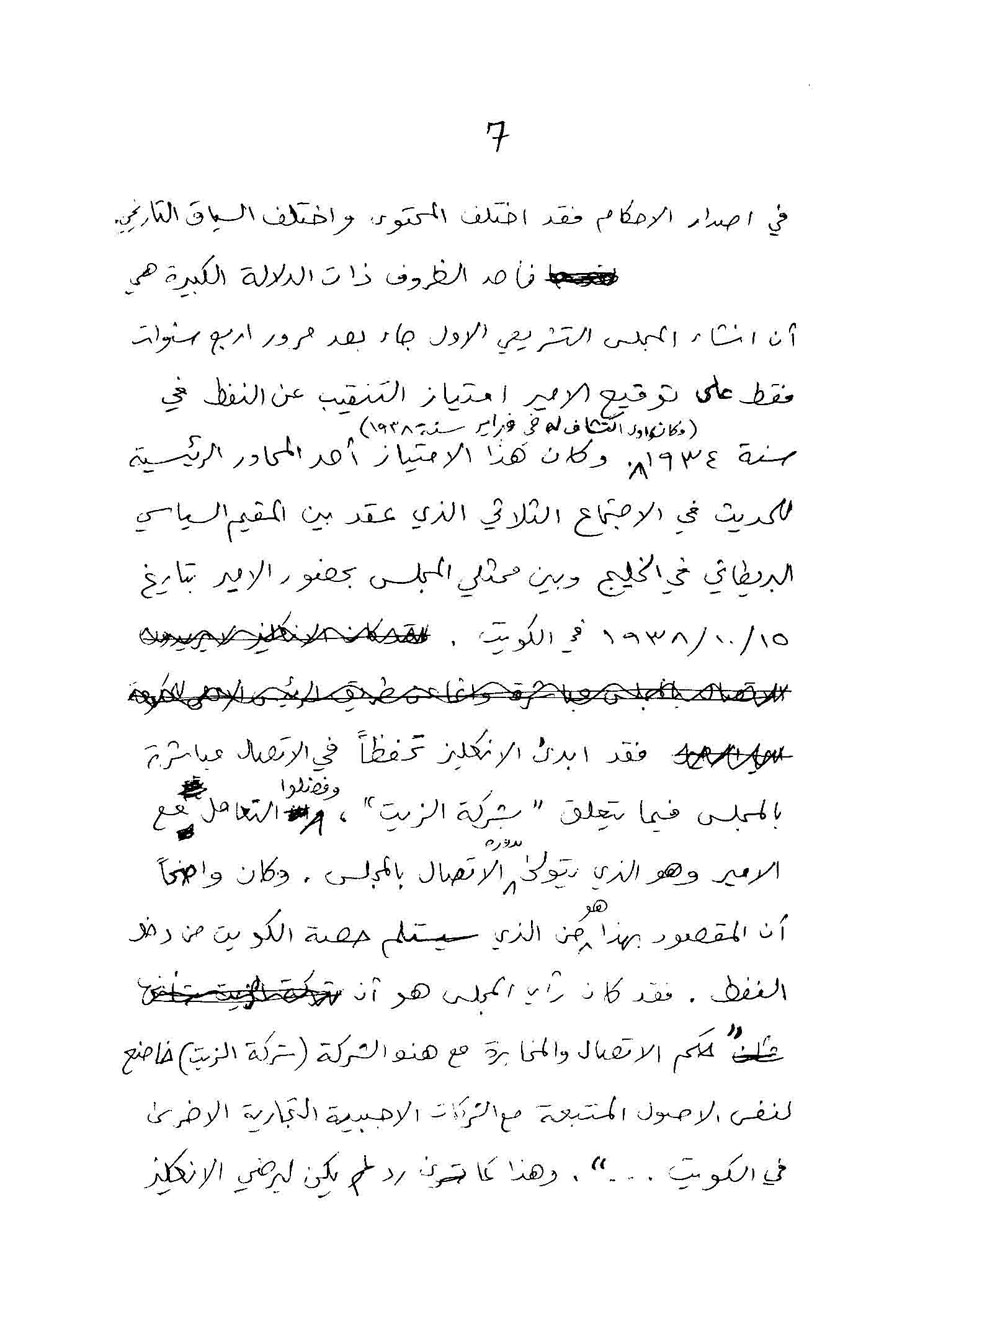 7
في اصدار الاحكام فقد اختلف المحتوى واختلف السياق التاريخي.
فأحد الظروف ذات الدلالة الكبيرة هي
أن انشاء المجلس التشريعي الاول جاء بعد مرور اربع سنوات
فقط على توقيع الامير امتياز التنقيب عن النفط في
(وكان اول اكتشاف له في فبراير سنة ١٩٣٨)
سنة ١٩٣٤. وكان هذا الامتياز أحد المحاور الرئيسية
للحديث في الاجتماع الثلاثي الذي عقد بين المقيم السياسي
البريطاني في الخليج وبين ممثلي المجلس بحضور الامير بتاريخ
١٩٣٨/١٠/١٥ في الكويت . لقد كان الانكليز لا يريدون
الاتصال بالمجلس مباشرة وانما عن طريق الرئيس الاعلى للحكومة
فقد ابدى الانكليز تحفظاً في الاتصال مباشرة
بالمجلس فيما يتعلق "بشركة الزيت" ، وفضلوا التعامل مع
الامير وهو الذي يتولى بدوره الاتصال بالمجلس . وكان واضحاً
أن المقصود بهذا هو من الذي سيستلم حصة الكويت من دخل
النفط . فقد كان رأي المجلس هو أن شركة الزيت
شأن "حكم الاتصال والمخابرة مع هذه الشركة (شركة الزيت) خاضع
لنفس الاصول المتبعة مع الشركات الاجنبية التجارية الاخرى
في الكويت ...". وهذا كما ترى رد لم يكن ليرضي الانكليز